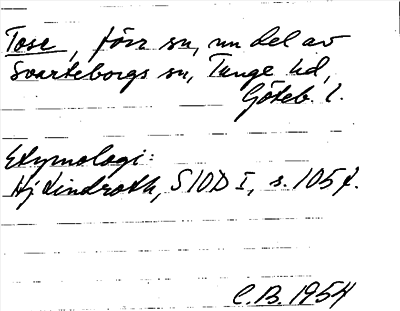 Tose, förr sn, nu del av
Svarteborgs sn, Tunge hd,
Göteb. l.
Etymologi:
Hj Lindroth, SIOD I, s. 105 f.
C.B. 1954